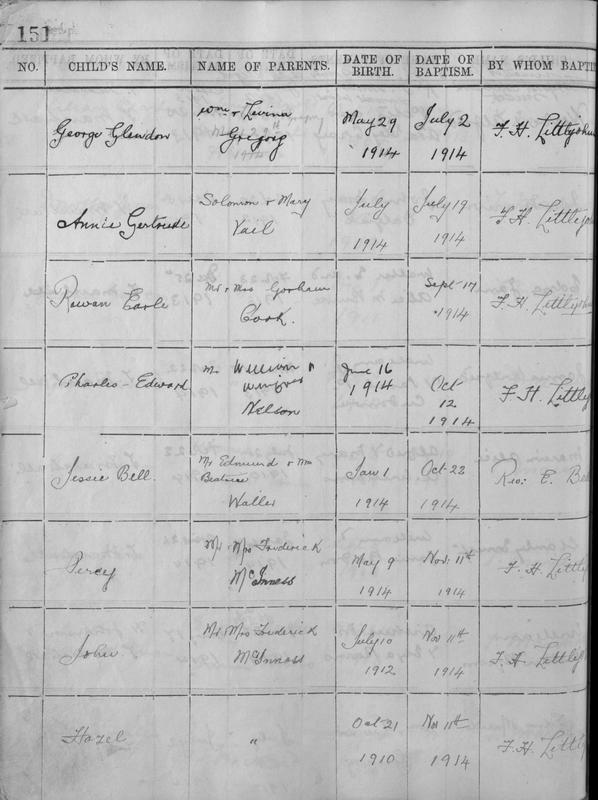 151
NO. CHILD'S NAME. NAME OF PARENTS. DATE OF BIRTH. DATE OF BAPTISM. BY WHOM BAPTI
George Glendon Wm & Levina Gregory May 29 1914 July 2 1914 F. H. Littlejohn
Annie Gertrude Solomon & Mary Vail July 1914 July 19 1914 F. H. Littlejo
Rowan Earle Mr & Mrs Gorham Cook. Sept 17 1914 F. H. Littlejohn
Charles-Edward Mr William & Nelson June 16 1914 Oct 12 1914 F. H. Littlej
Jessie Bell. Mr Edmund & Mrs Beatrice Waller Jan 1 1914 Oct 22 1914 Rev: E. Be
Percy Mr & Mrs Frederick McInness May 9 1914 Nov. 11th 1914 F. H. Littlej
John Mr & Mrs Frederick McInness July 10 1912 Nov 11th 1914 F. H. Littlej
Hazel " Oct 21 1910 Nov 11th 1914 F. H. Littlej